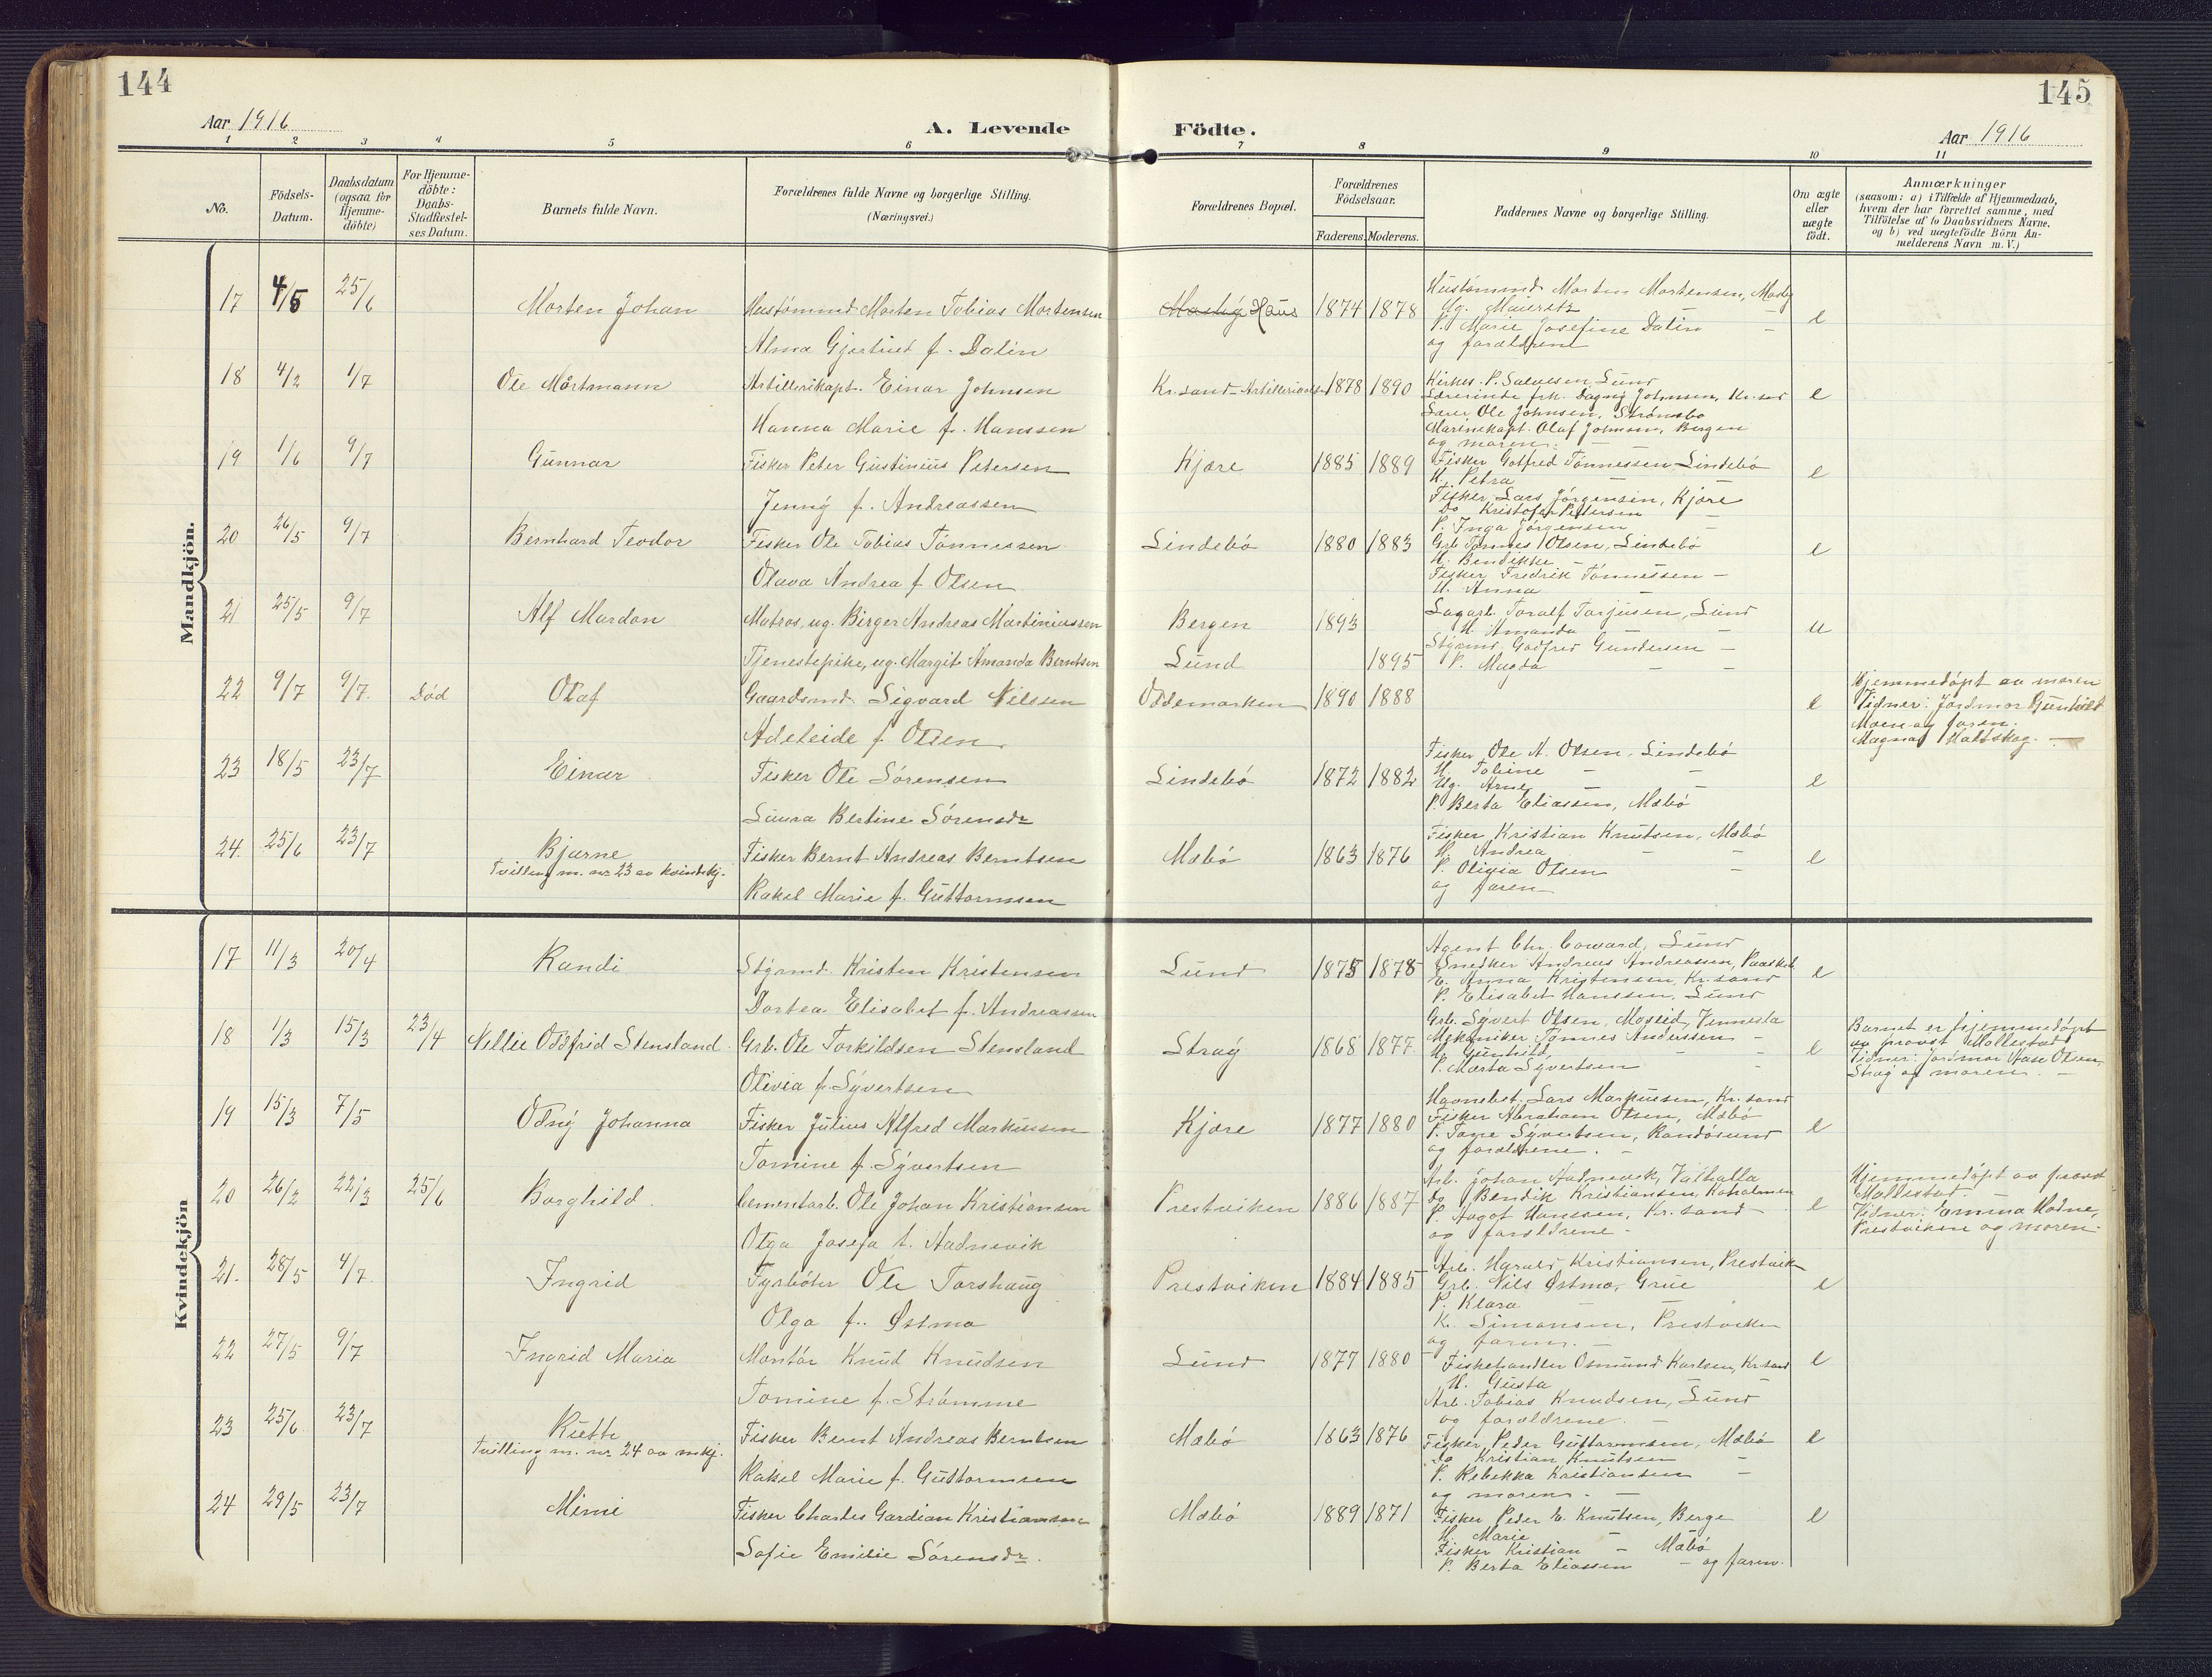 144
145
Aar 1916
A. Levende
Födte.
Aar 1916
1 2 3 4 5 6 7 8 9 10 11
No.
Födsels-
Datum.
Daabsdatum
(ogsaa for
Hjemme-
döbte)
For Hjemme-
döbte:
Daabs-
Stadfæstel-
ses Datum.
Barnets fulde Navn.
Forældrenes fulde Navne og borgerlige Stilling.
(Næringsvei.)
Forældrenes Bopæl.
Forældrenes
Födselsaar.
Faderens. Moderens.
Faddernes Navne og borgerlige Stilling.
Om ægte
eller
uægte
födt.
Anmærkninger
(saasom: a) i Tilfælde af Hjemmedaab,
hvem der har forrettet samme, med
Tilföielse af to Daabsvidners Navne,
og b) ved uægtefödte Börn An-
melderens Navn m. V.)
Mandkjön.
17 4/5 25/6 Morten Johan
Hustömmd. Morten Tobias Mortensen
Alma Gjertine f. Dalin
Haus 1874 1878
Hustömmd. Morten Mortensen,
P. Marie Josefine Dalin
og forældrene
e
18 4/2 1/7 Ole Mörtmann
Artillerikapt. Einar Johnsen
Hanna Marie f. Hanssen
Kr.sand 1878 1890
Kirkes. P. Salvesen, Lund
Lærerinde frk. Dagny Johnsen, Kr.sand
Lærer Ole Johnsen, Strömsbo
Marinekapt. Olaf Johnsen, Bergen
og moren.
e
19 1/6 9/7 Gunnar
Fisker Peter Gustinius Petersen
Jenny f. Andreassen
Kjære 1885 1889
Fisker Gotfred Tönnessen Lindebö
H. Petra
Fisker Lars Jörgensen, Kjære
Do Kristofer Pettersen
P. Inga Jörgensen
e
20 26/5 9/7 Bernhard Teodor
Fisker Ole Tobias Tönnessen
Olava Andrea f. Olsen
Lindebö 1880 1883
Grb. Tönnes Olsen, Lindebö
H. Bendikke -
Fisker Fredrik Tönnessen -
H. Anna -
e
21 25/5 9/7 Alf Mardon
Matros, ug. Birger Andreas Martiniussen
Tjenestepike, ug. Margit Amanda Berntsen
Bergen 1893
Lund 1895
Lagarb. Toralf Torjusen, Lund
H. Amanda - -
Styrmd. Godfred Gundersen -
P. Magda - -
u
22 9/7 9/7 Död Olaf
Gaardsmd. Sigvard Nilssen
Adeleide f. Olsen
Oddemarken 1890 1888
e
Hjemmedöpt av moren
Vidner: Jordmor Gunhild
Moen og faren.
23 18/5 23/7 Einar
Fisker Ole Sörensen
Laura Bertine Sörensdr
Lindebö 1872 1882
Fisker Ole A. Olsen, Lindebö
H. Tobine - -
Ug. Arne - -
P. Berta Eliassen, Mæbö
e
24. 25/6 23/7 Bjarne
Tvilling m. nr 23 av kvindekj.
Fisker Bernt Andreas Berntsen
Rakel Marie f. Guttormsen
Mæbö 1863 1876
Fisker Kristian Knutsen, Mæbö
H. Andrea - -
P. Olivia Olsen -
og faren
e
Kvindekjön
17 11/3 20/4 Randi
Styrmd. Kristen Kristensen
Dortea Elisabet f. Andreassen
Lund 1875 1878
Agent Chr. Coward, Lund
Snedker Andreas Andreassen,
E. Anna Kristensen, Kr.sand
P. Elisabet Hanssen, Lund
e
18 1/3 15/3 23/4 Nellie Oddfrid Stensland
Grb. Ole Torkildsen Stensland
Olivia f. Syvertsen
Stray 1868 1877
Grb. Syvert Olsen, Moseid, Vennesla
Mekaniker Tönnes Anderssen -
H. Gunhild - -
P. Marta Syvertsen -
e
Barnet er hjemmedöpt
av provst Mollestad
Vidner: Jordmor Aase Olsen,
Stray og moren. -
19 15/3 7/5 Odny Johanna
Fisker Julius Alfred Markussen
Tomine f. Syvertsen
Kjære 1877 1880
Havnebet. Lars Markussen, Kr.sand
Fisker Abraham Olsen, Mæbö
P. Tora Syvertsen, Randösund
og forældrene. -
e
20 26/2 22/3 25/6 Borghild.
Cementarb. Ole Johan Kristiansen
Olga Josefa f. Aadnevik
Prestviken 1886 1887
Arb. Johan Aadnevik, Valhalla
Do Bendik Kristiansen, Koholmen
P. Aagot Hanssen, Kr.sand -
og forældrene -
e
Hjemmedöpt av provst
Mollestad. -
Vidner: Emma Hodne,
Prestviken og moren.
21. 28/5 4/7 Ingrid
Fyrböter Ole Torshaug
Olga f. Østmo
Prestviken 1884 1885
Arb. Harald Kristiansen, Prestvik
Grb. Nils Østmo, Grue
P. Klara - -
K. Simonsen, Prestviken
og faren. -
e
22 27/5 9/7 Ingrid Maria
Montör Knud Knudsen
Tomine f. Strömme
Lund 1877 1880
Fiskehandler Osmund Karlsen, Kr.sand
H. Gusta -
Arb. Tobias Knudsen, Lund
og forældrene. -
e
23 25/6 23/7 Rutt
Tvilling m. nr 24 av mkj.
Fisker Bernt Andreas Berntsen
Rakel Marie f. Guttormsen
Mæbö 1863 1876
Fisker Peder Guttormsen, Mæbö
Do Kristian Knutsen -
P. Rebekka Kristiansen -
og moren. -
e
24 29/5 23/7 Mimi
Fisker Charles Gardian Kristiansen
Sofie Emilie Sörensdr.
Mæbö 1889 1871
Fisker Peder E. Knutsen, Berge
H. Marie - -
Fisker Kristian - Mæbö
P. Berta Eliassen - og faren.
e